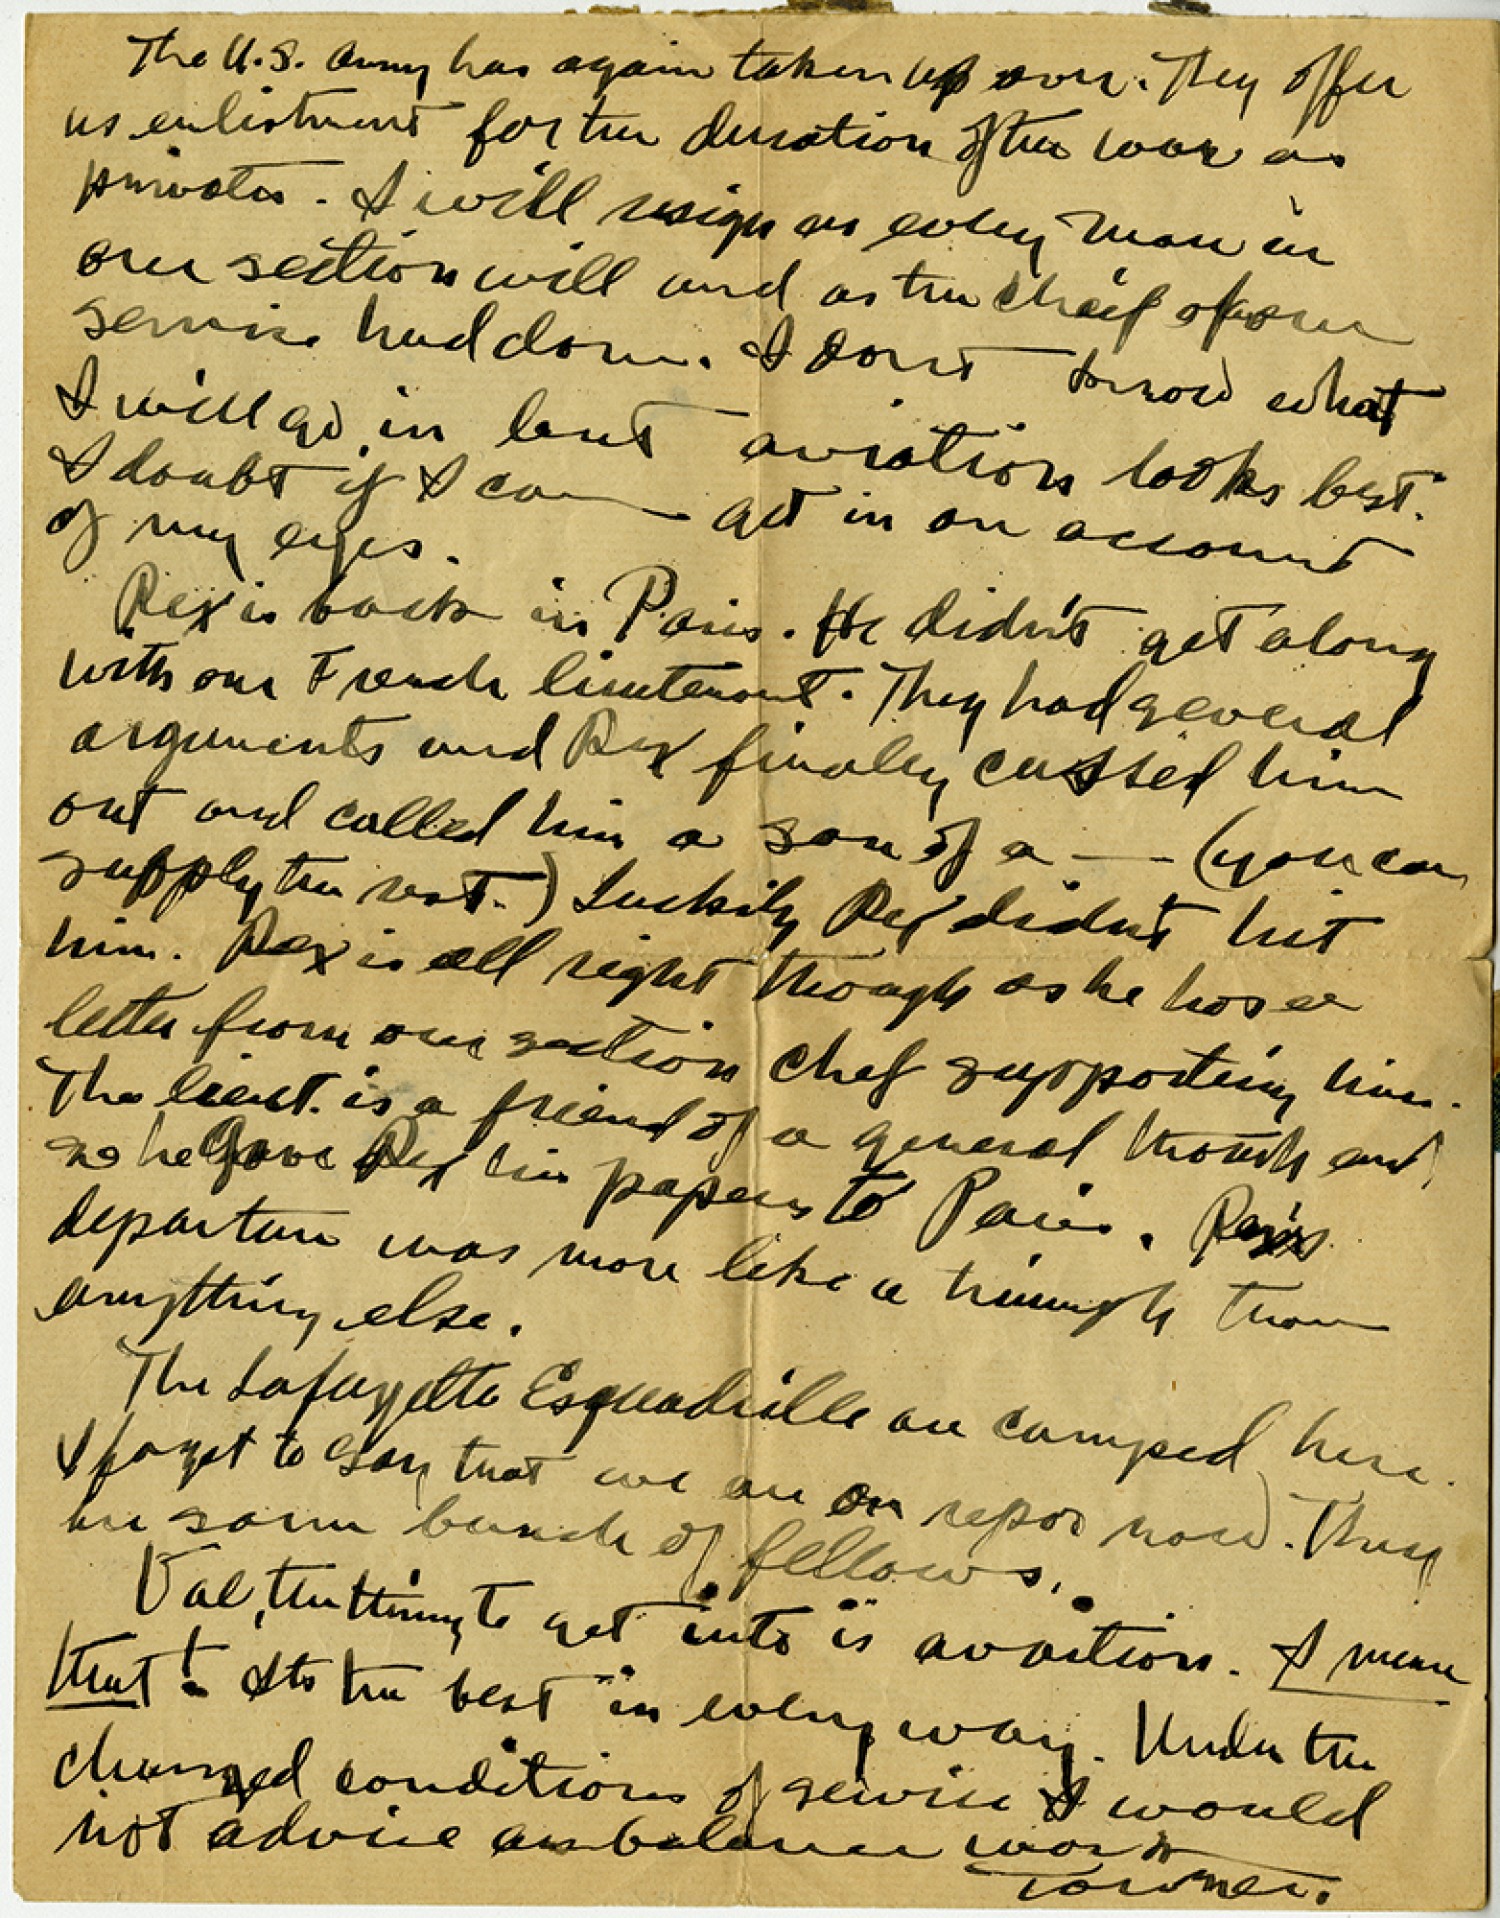 The U.S. Army has again taken us over. They offer
us enlistment for the duration of the war as
privates. I will resign as every man in
our section will and as the cheif of our
service had done. I dont know what
I will go in but aviation looks best.
I doubt if I can get in on account
of my eyes.
Rex is back in Paris. He didn't get along
with our French lieutenant. They had several
arguments and Rex finaley cussed him
out and called him a son of a —— (you can
supply the rest.) Luckily Rex didn't hit
him. Rex is all right though as he has a
letter from our section chef supporting him.
The lieut. is a friend of a general though and
so he gave Rex his papers to Paris. Rex's
departure was more like a triumph than
anything else.
The Lafayette Esquadrille are camped here.
I forgot to say that we are on repos now). They
are some bunch of fellows.
Val, the thing to get into is aviation. I mean
that! Its the best in every way. Under the
changed conditions of service I would
not advise ambulance work
Towner.